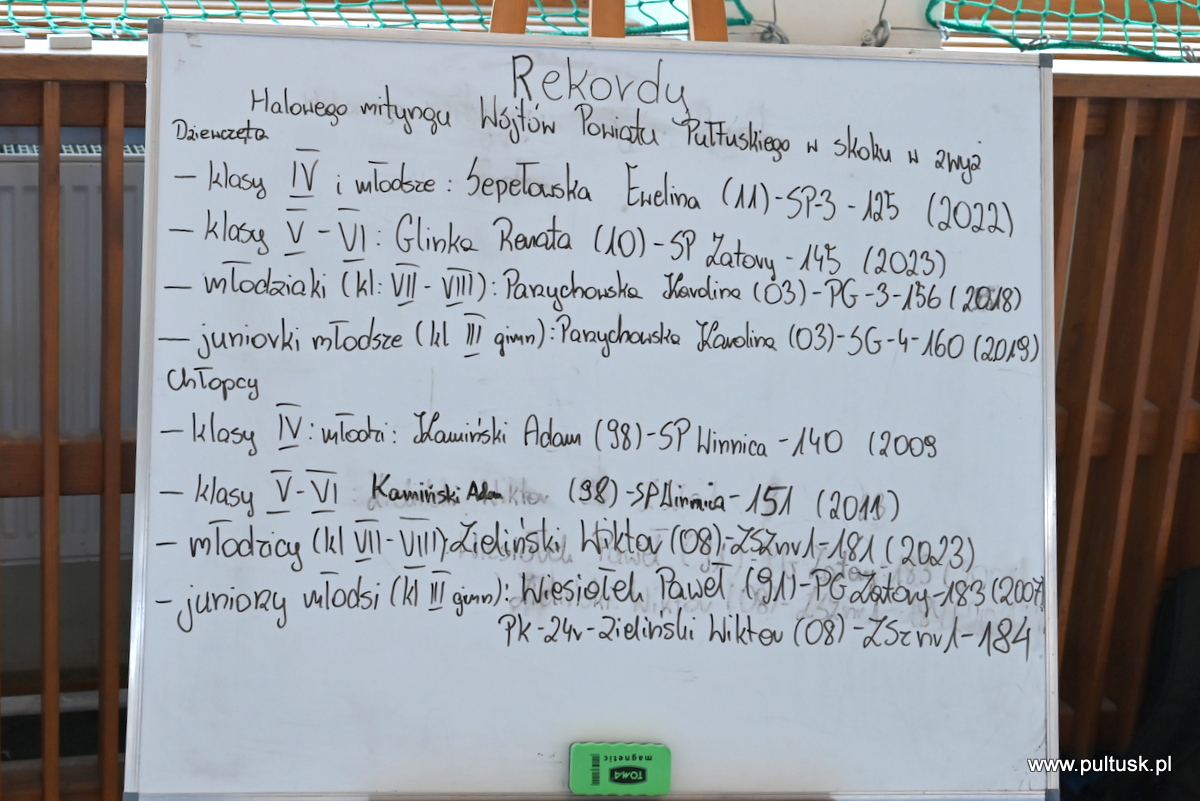 Rekordy
Halowego mityngu Wójtów Powiatu Pułtuskiego w skoku w zwyż
Dziewczęta
- klasy IV i młodsze: Sepełowska Ewelina (11)-SP-3 - 125 (2022)
- klasy V - VI: Glinka Renata (10)-SP Zatory - 145 (2023)
- młodziaki (kl: VII - VIII): Parzychowska Karolina (03)-PG-3-156 (2018)
- juniorki młodsze (kl III gimn): Parzychowska Karolina (03)-SG-4-160 (2019)
Chłopcy
- klasy IV: młodzi: Kamiński Adam (98)-SP Winnica - 140 (2009
- klasy V-VI Kamiński Adam (98)-SP Winnica-151 (2011)
- młodzicy (kl VII-VIII): Zieliński Wiktor (08)-ZSZnr1-181 (2023)
- juniorzy młodsi (kl III gimn): Wiesiołek Paweł (91)-PG Zatory-183 (2007)
PK-24r-Zieliński Wiktor (08)-ZSznr1-184
TOMA
magnetic
www.pultusk.pl